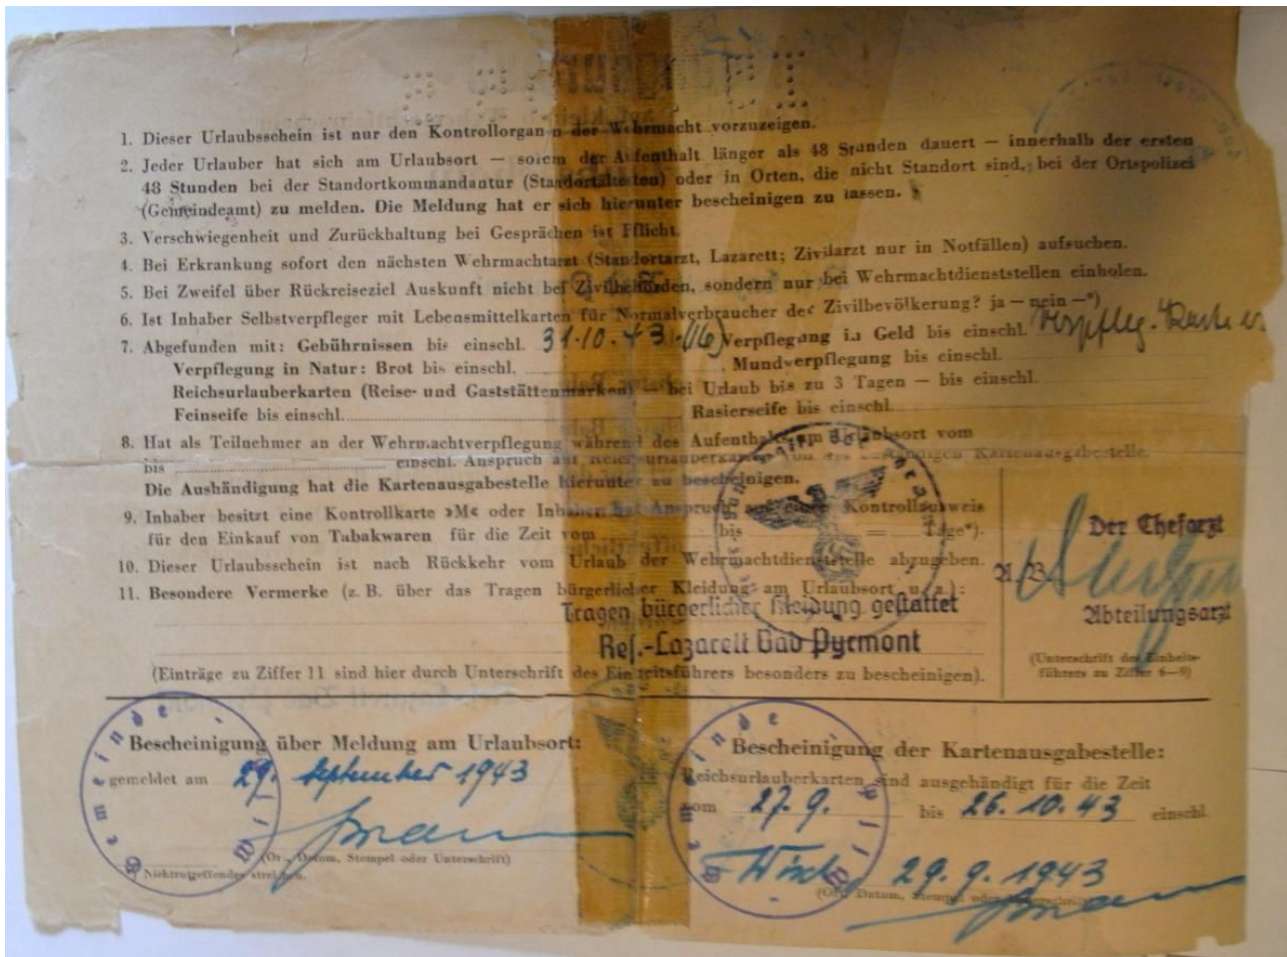 1. Dieser Urlaubsschein ist nur den Kontrollorgan n der Wehrmacht vorzuzeigen.
2. Jeder Urlauber hat sich am Urlaubsort — sofern der Aufenthalt länger als 48 Stunden dauert — innerhalb der ersten
48 Stunden bei der Standortkommandantur (Standortältesten) oder in Orten, die nicht Standort sind, bei der Ortspolizei
(Gemeindeamt) zu melden. Die Meldung hat er sich hierunter bescheinigen zu lassen.
3. Verschwiegenheit und Zurückhaltung bei Gesprächen ist Pflicht.
4. Bei Erkrankung sofort den nächsten Wehrmachtarzt (Standortarzt, Lazarett; Zivilarzt nur in Notfällen) aufsuchen.
5. Bei Zweifel über Rückreiseziel Auskunft nicht bei Zivilbehörden, sondern nur bei Wehrmachtdienststellen einholen.
6. Ist Inhaber Selbstverpfleger mit Lebensmittelkarten für Normalverbraucher der Zivilbevölkerung? ja — nein —*)
7. Abgefunden mit: Gebührnissen bis einschl. 31.10.43. Verpflegung in Geld bis einschl. Verpfleg.-Karte
Verpflegung in Natur: Brot bis einschl. , Mundverpflegung bis einschl.
Reichsurlauberkarten (Reise- und Gaststättenmarken) — bei Urlaub bis zu 3 Tagen — bis einschl.
Feinseife bis einschl. Rasierseife bis einschl.
8. Hat als Teilnehmer an der Wehrmachtverpflegung während des Aufenthalts am Urlaubsort vom
bis einschl. Anspruch auf Reichsurlauberkarten von der zuständigen Kartenausgabestelle.
Die Aushändigung hat die Kartenausgabestelle hierunter zu bescheinigen.
9. Inhaber besitzt eine Kontrollkarte »M« oder Inhaber hat Anspruch auf einen Kontrollausweis
für den Einkauf von Tabakwaren für die Zeit vom bis = Tage*).
10. Dieser Urlaubsschein ist nach Rückkehr vom Urlaub der Wehrmachtdienststelle abzugeben.
11. Besondere Vermerke (z. B. über das Tragen bürgerlicher Kleidung am Urlaubsort u. a.):
Tragen bürgerlicher Kleidung gestattet
Res.-Lazarett Bad Pyrmont
(Einträge zu Ziffer 11 sind hier durch Unterschrift des Einheitsführers besonders zu bescheinigen).
Der Chefarzt
Abteilungsarzt
(Unterschrift des Einheits-
führers zu Ziffer 6—9)
Bescheinigung über Meldung am Urlaubsort:
gemeldet am 29. September 1943
(Ort, Datum, Stempel oder Unterschrift)
*) Nichtzutreffendes streichen.
Gemeinde
Bescheinigung der Kartenausgabestelle:
Reichsurlauberkarten sind ausgehändigt für die Zeit
vom 27.9. bis 26.10.43 einschl.
29.9.1943
(Ort, Datum, Stempel oder Unterschrift)
Gemeinde